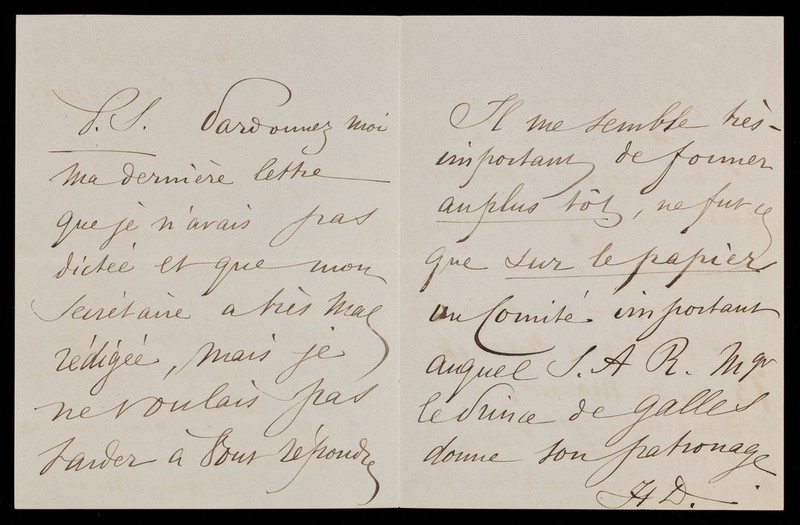 P.S. Pardonnez moi
ma dernière lettre
que je n'avais pas
dictée et que mon
Secrétaire a très mal
rédigée, mais je
ne voulais pas
tarder à Vous répondre
Il me semble très-
important de former
au plus tôt, ne fut ce
que sur le papier
un Comité important
auquel S. A R. Mgr
le Prince de Galles
donne son patronage
H D.